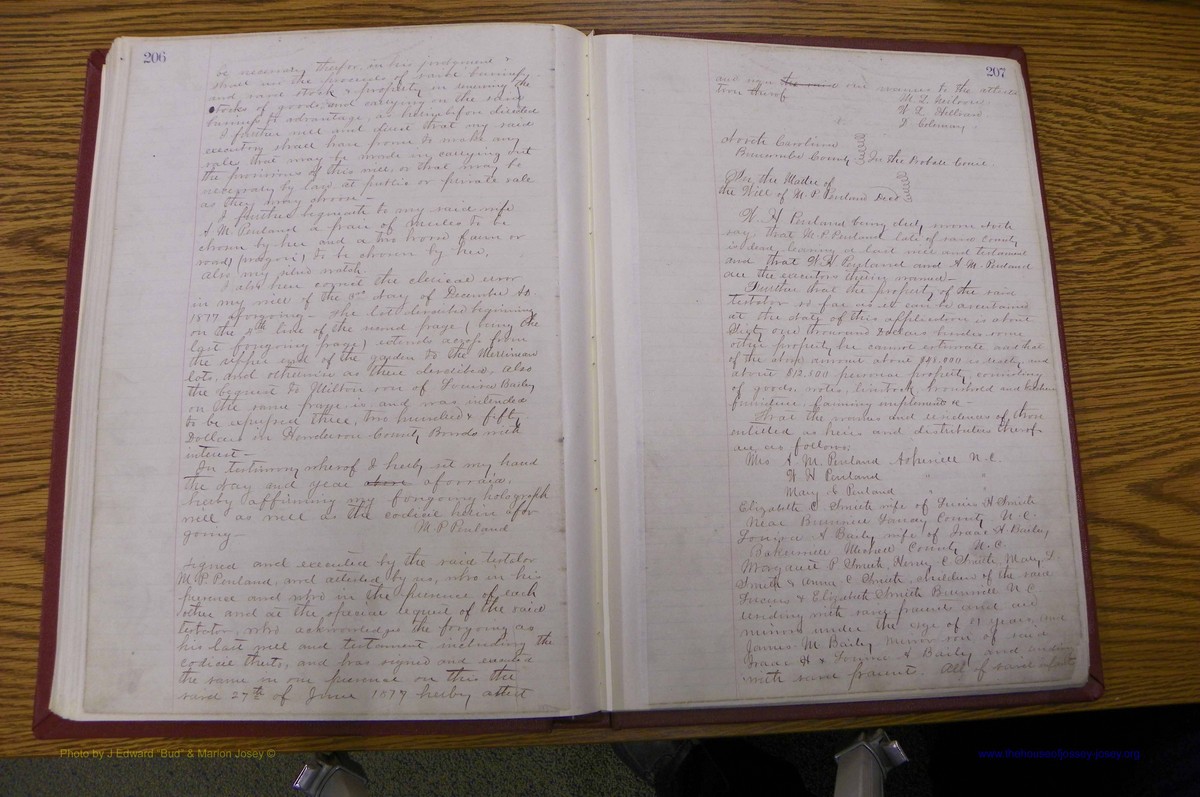 206
be necessary therefor, in his judgment &
shall use the proceeds of said business
and said stock & property in renewing the
stocks of goods and carrying on the said
business to advantage, as hereinbefore directed
I further will and direct that my said
executors shall have power to make any
sale that may be made in carrying out
the provisions of this will or that may be
necessary by law at public or private sale
as they may choose -
I further bequeath to my said wife
A M. Penland a pair of mules to be
chosen by her and a two horse farm or
road (wagon) to be chosen by her,
also my silver watch
I also here correct the clerical error
in my will of the 3rd day of December AD
1877 foregoing - the lots devised beginning
on the 4th line of the second page (being the
last foregoing page) extends across from
the upper end of the garden to the Merrimon
lots, and otherwise as there described, also
the bequest to Milton son of Louisa Bailey
on the same page is and was intended
to be expressed thus, two hundred & fifty
Dollars in Henderson County Bonds with
interest -
In testimony whereof I hereby set my hand
the day and year above aforesaid,
hereby affirming my foregoing holograph
will as well as the codicil herein afore
going -
M P Penland
Signed and executed by the said testator
M. P. Penland, and attested by us, who in his
presence and who in the presence of each
other and at the special request of the said
testator, who acknowledges the foregoing as
his last will and testament including the
codicil thereto, and has signed and executed
the same in our presence on this the
said 27th of June 1877 hereby attest
207
and sign the said our names to the attesta
tion thereof
W. L. Hilliard
J. Coleman
North Carolina
Buncombe County
In the Probate Court
In the Matter of
the Will of M. P. Penland Decd
W. H Penland being duly sworn doth
say: that M. P. Penland late of said County
is dead, leaving a last will and testament
and that W H Penland and A M. Penland
are the executors therein named -
Further that the property of the said
testator so far as it can be ascertained
at the date of this application is about
Sixty one thousand Dollars besides some
other property he cannot estimate and that
of the above amount about $48.000 is realty, and
about $12.000 personal property, consisting
of goods, notes, livestock, household and kitchen
furniture, farming implements &c -
That the names and residences of those
entitled as heirs and distributees thereof
are as follows:
Mrs A. M. Penland Asheville N. C.
W H Penland " "
Mary C Penland " "
Elizabeth C Smith wife of Lucius H Smith
Near Burnsville Yancey County N. C.
Louisa A Bailey wife of Isaac H. Bailey
Bakersville Mitchell County N. C.
Margaret P. Smith, Henry C Smith, Mary L
Smith & Anna C. Smith, children of the said
Lucius & Elizabeth Smith Burnsville N C
residing with said parent and are
minors under the age of 21 years, and
James M Bailey minor son of said
Isaac H & Louisa A Bailey and residing
with said parent. All of said infants
Photo by J Edward "Bud" & Marion Josey ©
www.thehouseofjossey-josey.org